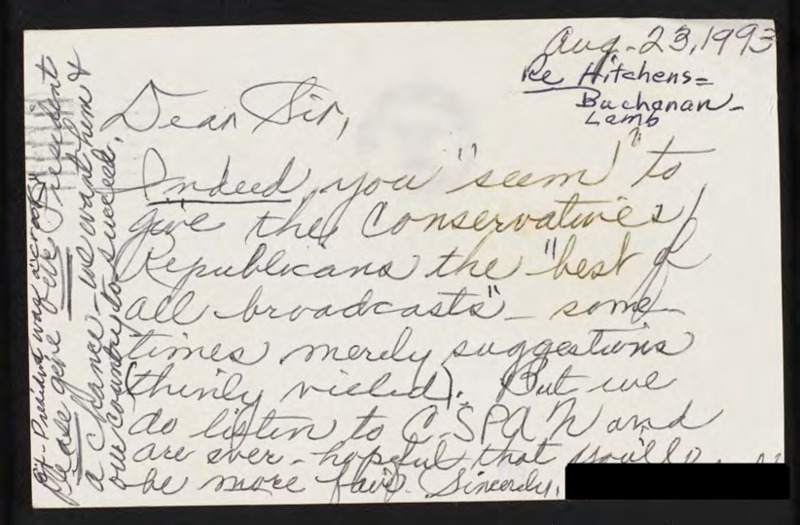 Aug. 23, 1993
Re Hitchens=
Buchanan-
Lamb
Dear Sir,
Indeed, you "seem" to
give the Conservatives/
Republicans the "best of
all broadcasts" - some-
times merely suggestions
(thinly vieled). But we
do listen to C-SPAN and
are ever-hopeful that you'll
be more fair. Sincerely,
President was a crook"
please give the President
a chance - we want him &
our country to succeed.